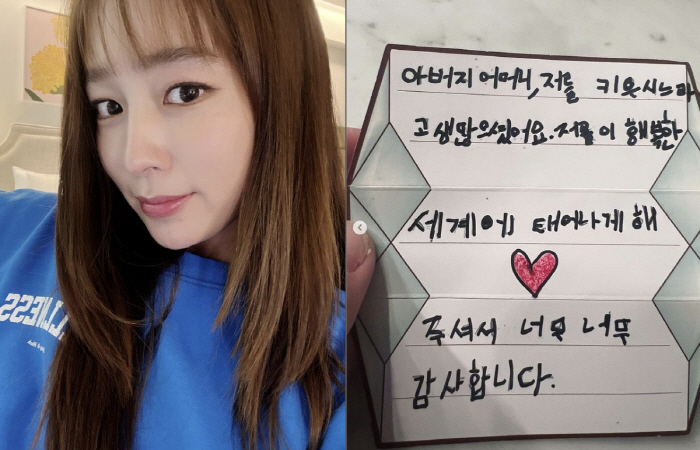 아버지 어머니, 저를 키우시느라
고생많으셨어요. 저를 이 행복한
세계에 태어나게 해
주셔서 너무 너무
감사합니다.